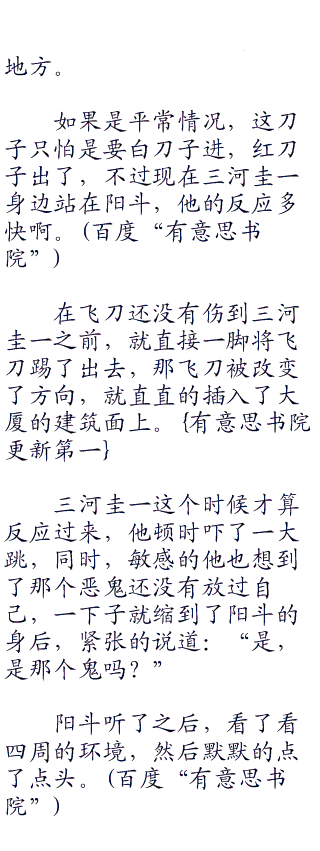 地方。
如果是平常情况，这刀
子只怕是要白刀子进，红刀
子出了，不过现在三河圭一
身边站在阳斗，他的反应多
快啊。(百度“有意思书
院”)
在飞刀还没有伤到三河
圭一之前，就直接一脚将飞
刀踢了出去，那飞刀被改变
了方向，就直直的插入了大
厦的建筑面上。{有意思书院
更新第一}
三河圭一这个时候才算
反应过来，他顿时吓了一大
跳，同时，敏感的他也想到
了那个恶鬼还没有放过自
己，一下子就缩到了阳斗的
身后，紧张的说道：“是，
是那个鬼吗？”
阳斗听了之后，看了看
四周的环境，然后默默的点
了点头。(百度“有意思书
院”)